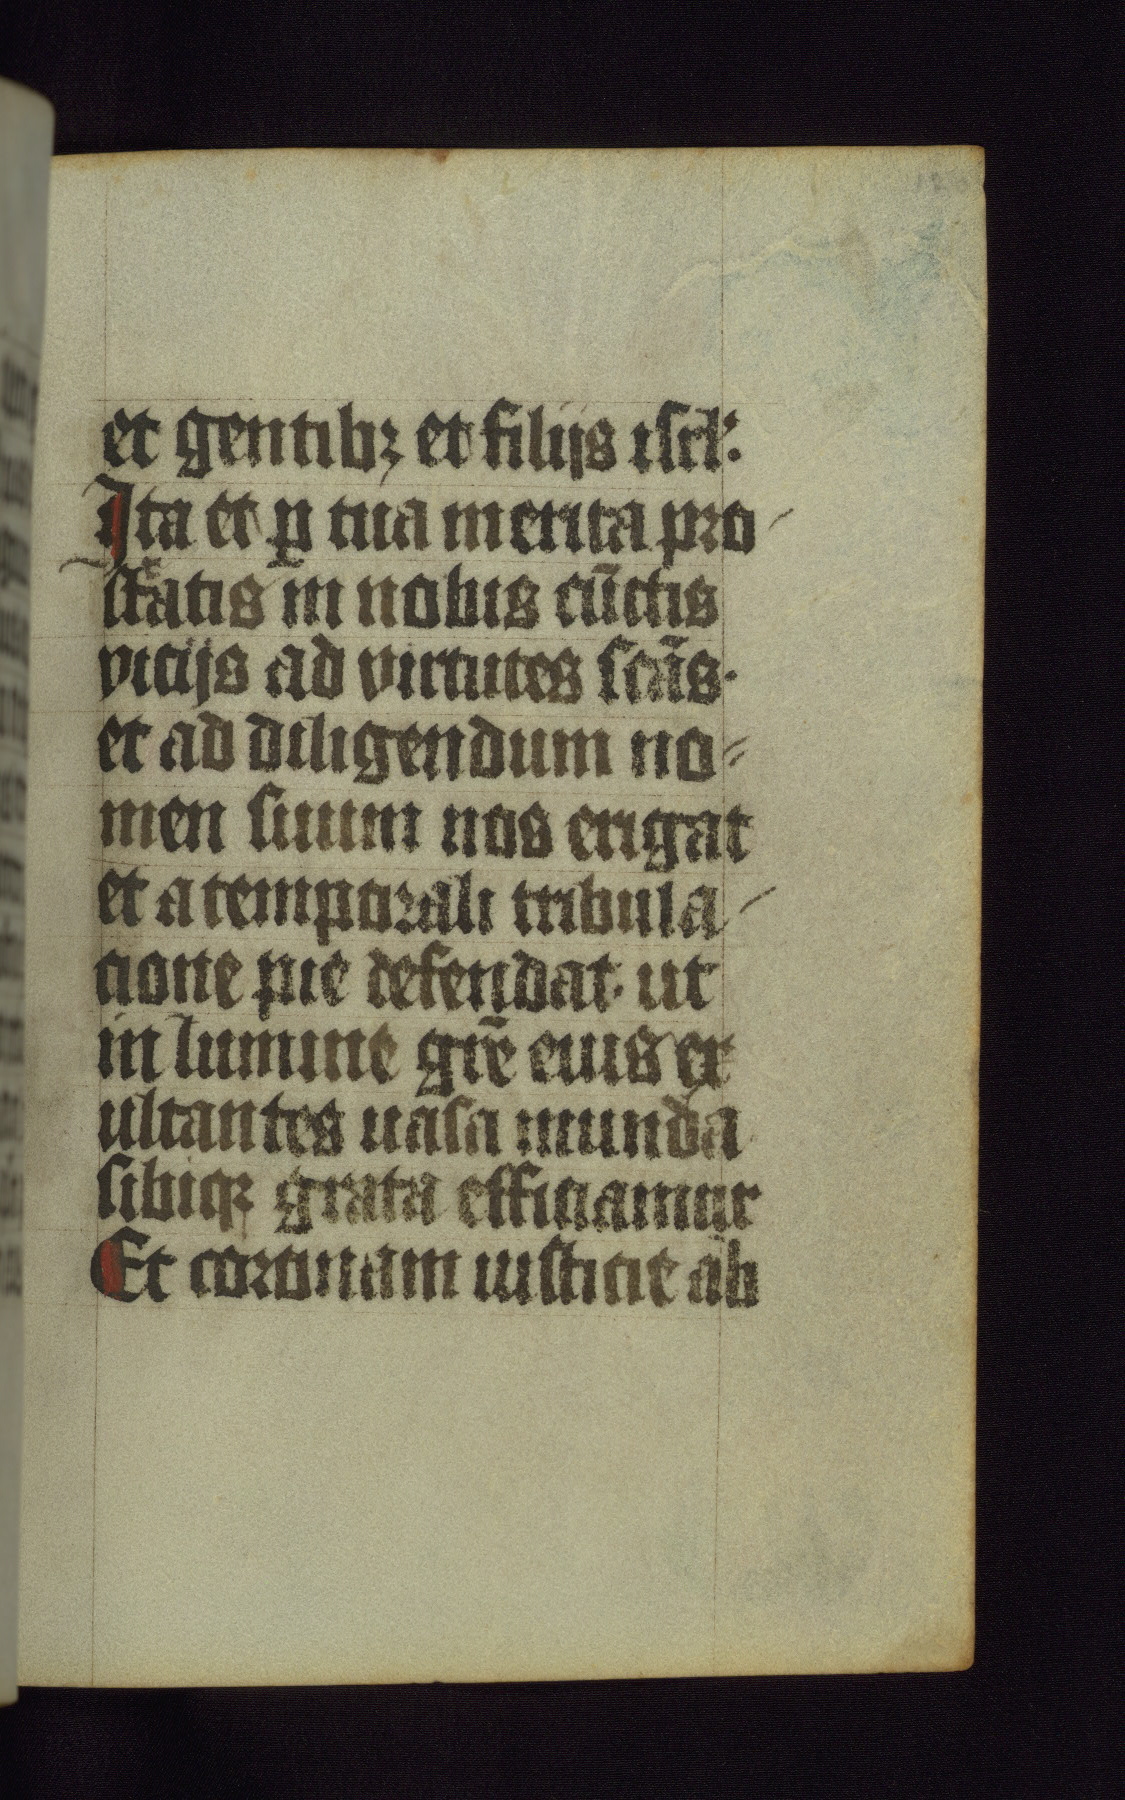 et gentibꝫ et filijs isrl'.
Ita et ꝑ tua merita pro-
stratis in nobis cūctis
vicijs ad virtutes scās.
et ad diligendum no-
men suum nos erigat
et a temporali tribula-
cione pie defendat. ut
in lumine gre̅ eius ex
ultantes uasa munda
sibiqꝫ grata efficiamur
Et coronam iusticie ab